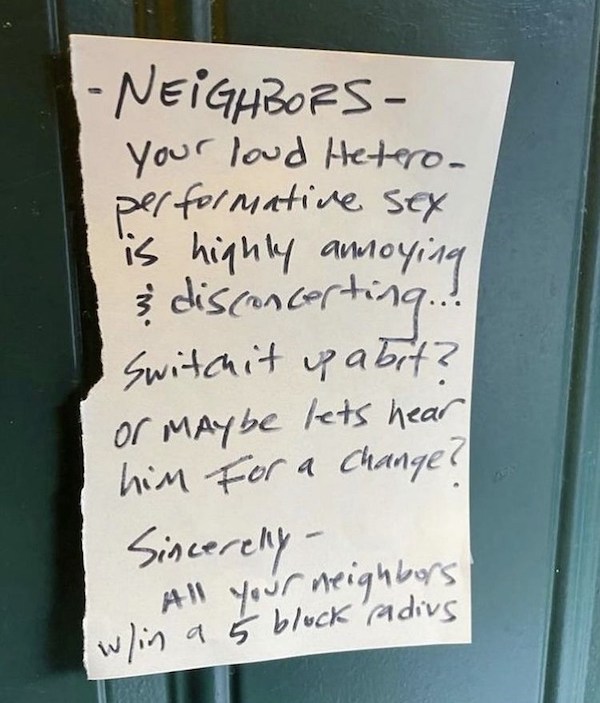 - NEiGHBORS -
Your loud Hetero-
performative sex
is highly annoying
& disconcerting...
Switch it up a bit?
or MAybe lets hear
him For a change?
Sincerely -
All your neighbors
w/in a 5 block radius